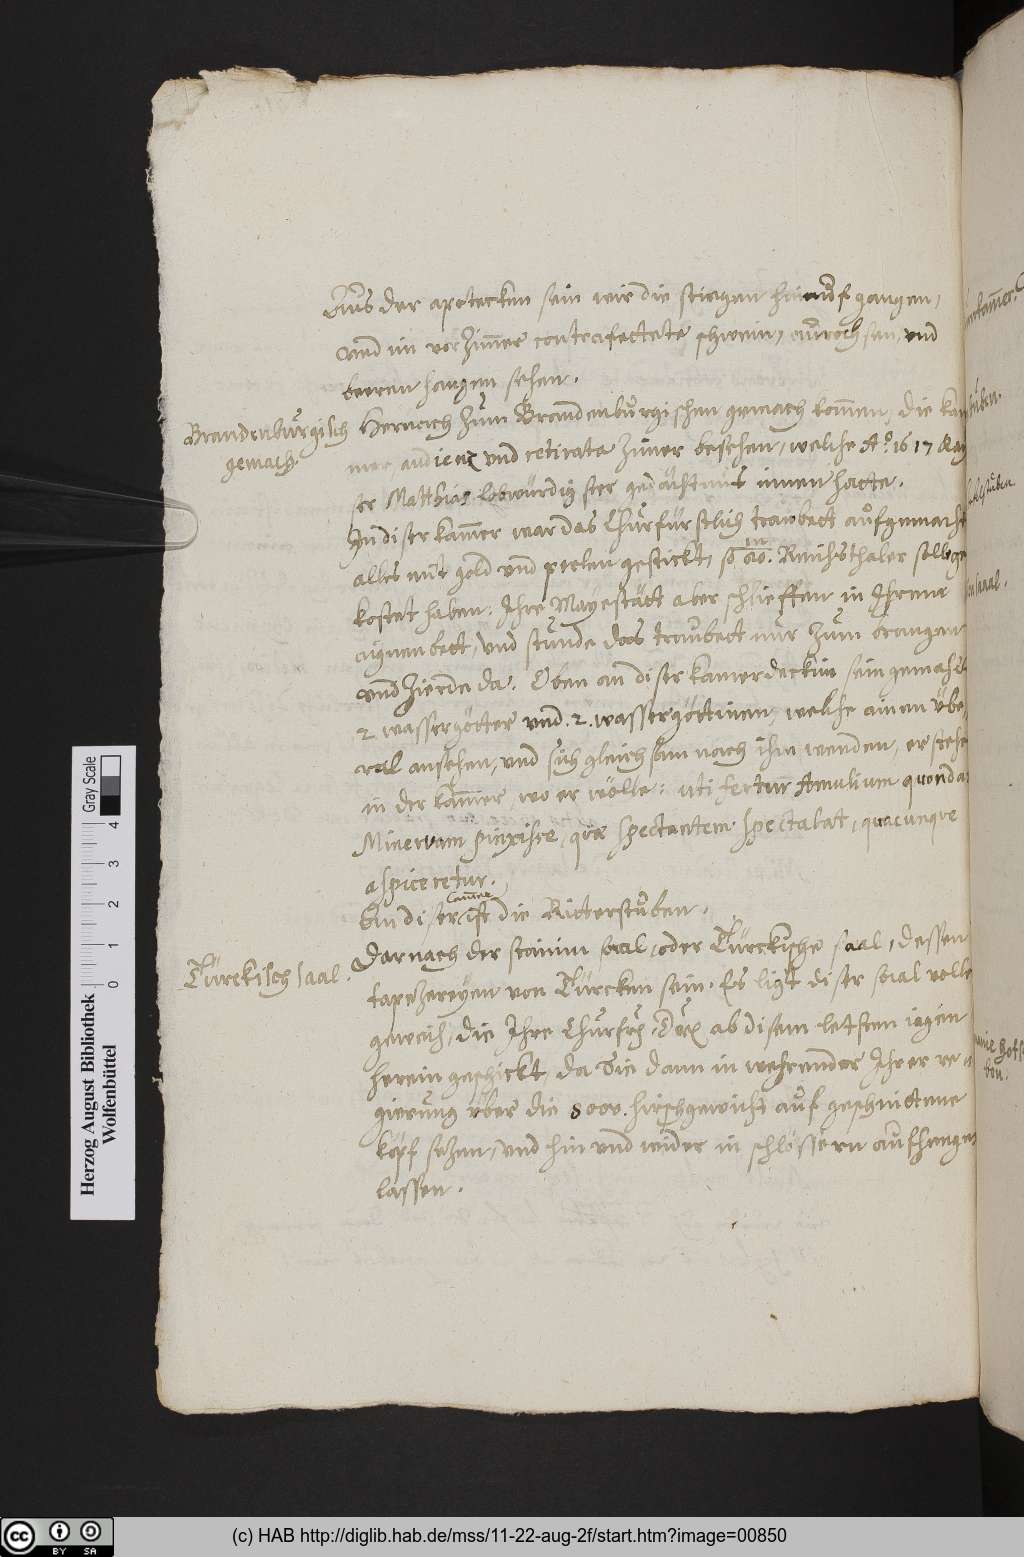 Auß der apotecken sein wir die stiegen hinauf gangen,
vnd im vorzimer contrafectete schwein, aurochsen, vnd
beeren hangen sehen.
Brandenburgisch
gemach.
Hernach zum Brandenburgischen gemach kommen, die kam
mer, audienz vnd retirate zimer besehen, welche Aº. 1617 Kay
ser Matthias lobwürdigster gedächtnus innen hatte.
In diser kammer war das Churfürstlich traubett aufgemacht
alles mit gold vnd perlen gestickt, so Reichsthaler solle ge
kostet haben. Ihre Mayestätt aber schlieffen in Ihrem
aignen bett, vnd stunde das traubett nur zum brangen
vnd zierde da. Oben an diser kamerdeckin sein gemahlt
2 wassergötter vnd .2. wassergöttinen, welche ainen übe
ral ansehen, vnd sich gleichsam nach ihm wenden, er stehe
in der kammer, wo er wölle: uti fertur Amulium quondam
Minervam pinxisse, quæ spectantem spectabat, quacunque
aspiceretur.
Cammer
An diser ist die Ritterstuben.
Türckisch saal.
Darnach der stainin saal, oder Türckische saal, dessen
tapezereyen von Türcken sein. Es ligt diser saal voller
geweih, die Ihre Churfr. ab disem letsten iagen
herein geschickt, da Sie dann in wehrender Ihrer re
gierung über die 8000. hirschgewicht auf geschnittene
köpf sezen, vnd hin vnd wider in schlössern aufhengen
lassen.
Herzog August Bibliothek
Wolfenbüttel
0 1 2 3 4
Gray Scale
cc BY SA
(c) HAB http://diglib.hab.de/mss/11-22-aug-2f/start.htm?image=00850